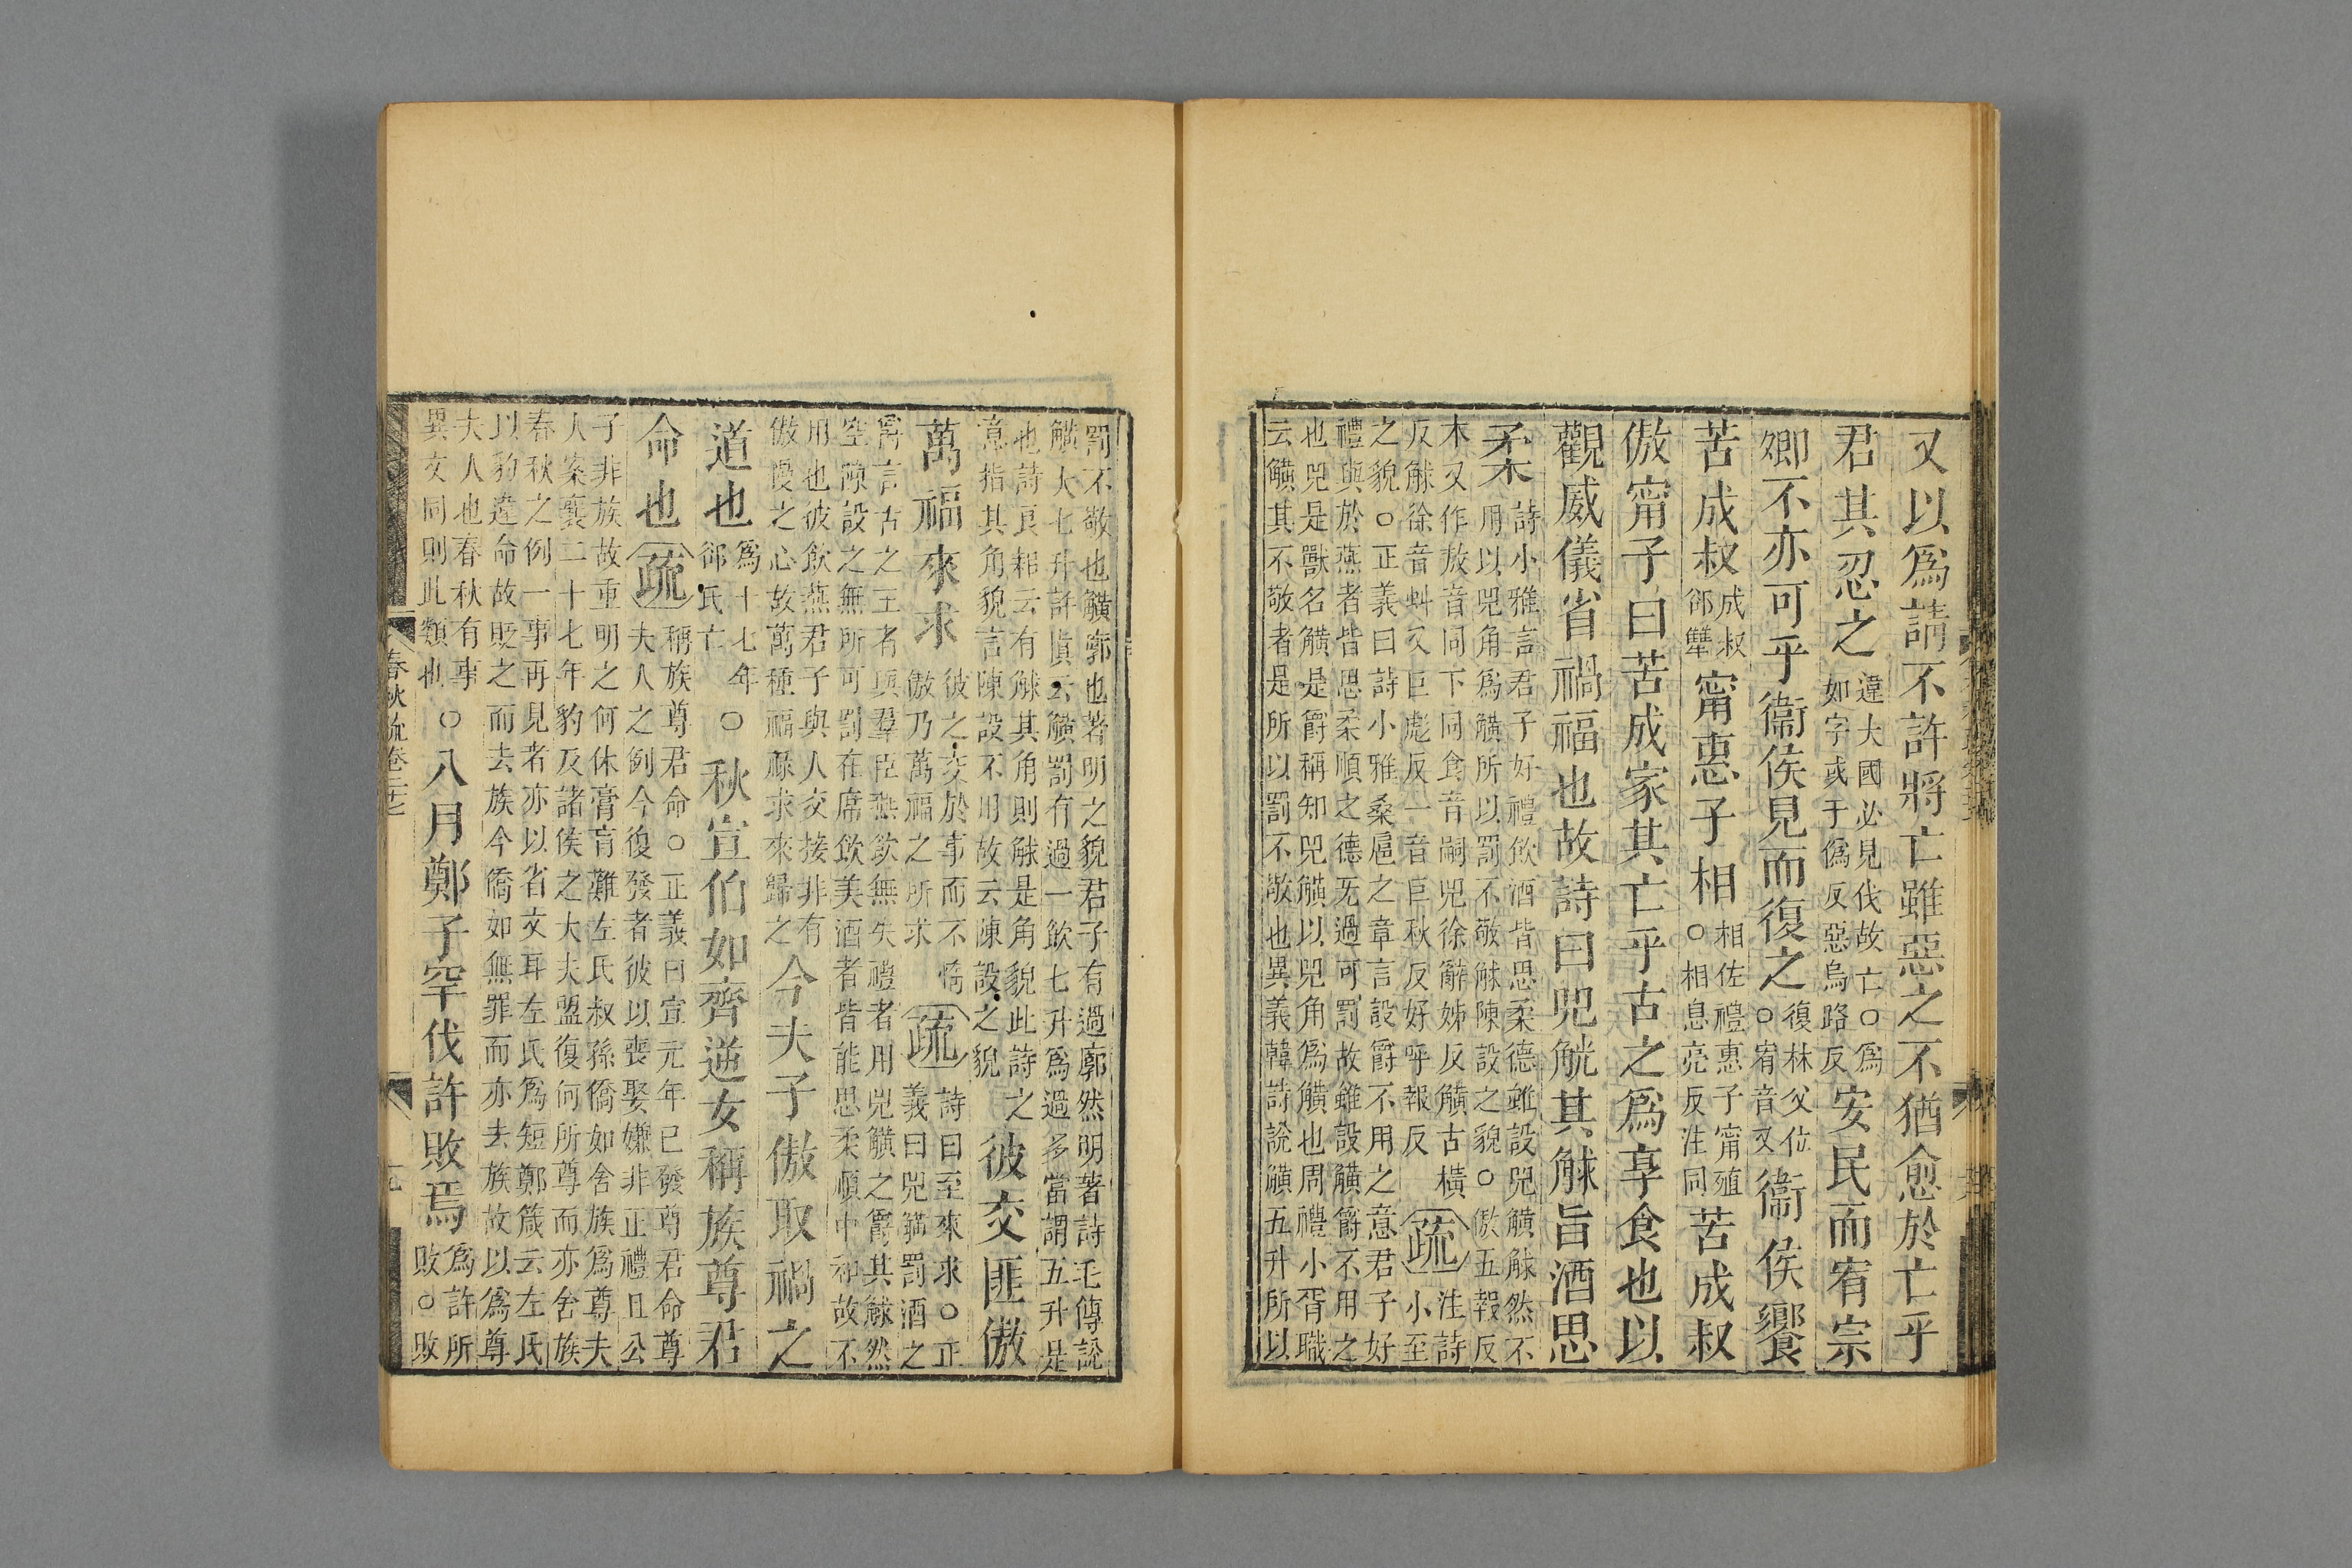 又以爲請不許將亡雖惡之不猶愈於亡乎
君其忍之違大國必見伐故亡○爲如字或于僞反惡烏路反安民而宥宗
卿不亦可乎衞侯見而復之復林父位○宥音又衞侯饗
苦成叔成叔郤犫甯惠子相相佐禮惠子甯殖○相息亮反注同苦成叔
傲甯子曰苦成家其亡乎古之爲享食也以
觀威儀省禍福也故詩曰兕觥其觩旨酒思
柔詩小雅言君子好禮飲酒皆思柔德雖設兕觵觩然不用以兕角爲觵所以罰不敬觩陳設之貌○傲五報反
本又作敖音同下同食音嗣兕徐辭姊反觵古橫反觩徐音虯又巨彪反一音巨秋反好呼報反疏注詩小至
之貌○正義曰詩小雅桑扈之章言設爵不用之意君子好禮與於燕者皆思柔順之德无過可罰故雖設觵爵不用之
也兕是獸名觵是爵稱知兕觵以兕角爲觵也周禮小胥職云觵其不敬者是所以罰不敬也異義韓詩說觵五升所以
罰不敬也觵廓也著明之貌君子有過廓然明著詩毛傳說觵大七升許慎云觵罰有過一飲七升爲過多當謂五升是
也詩良耜云有觩其角則觩是角貌此詩之意指其角貌言陳設不用故云陳設之貌彼交匪傲
萬福來求彼之交於事而不惰傲乃萬福之所求疏詩曰至來求○正義曰兕觵罰酒之
爵言古之王者與羣臣燕飲無失禮者用兕觵之爵其觩然空陳設之無所可罰在席飲美酒者皆能思柔順中和故不
用也彼飲燕君子與人交接非有傲慢之心故萬種福祿求來歸之今夫子傲取禍之
道也爲十七年郤氏亡○秋宣伯如齊逆女稱族尊君
命也疏稱族尊君命○正義曰宣元年已發尊君命尊夫人之例今復發者彼以喪娶嫌非正禮且公
子非族故重明之何休膏肓難左氏叔孫僑如舍族爲尊夫人案襄二十七年豹及諸侯之大夫盟復何所尊而亦舍族
春秋之例一事再見者亦以省文耳左氏爲短鄭箴云左氏以豹違命故貶之而去族今僑如無罪而亦去族故以爲尊
夫人也春秋有事異文同則此類也○八月鄭子罕伐許敗焉爲許所敗○敗
春秋疏卷二十七